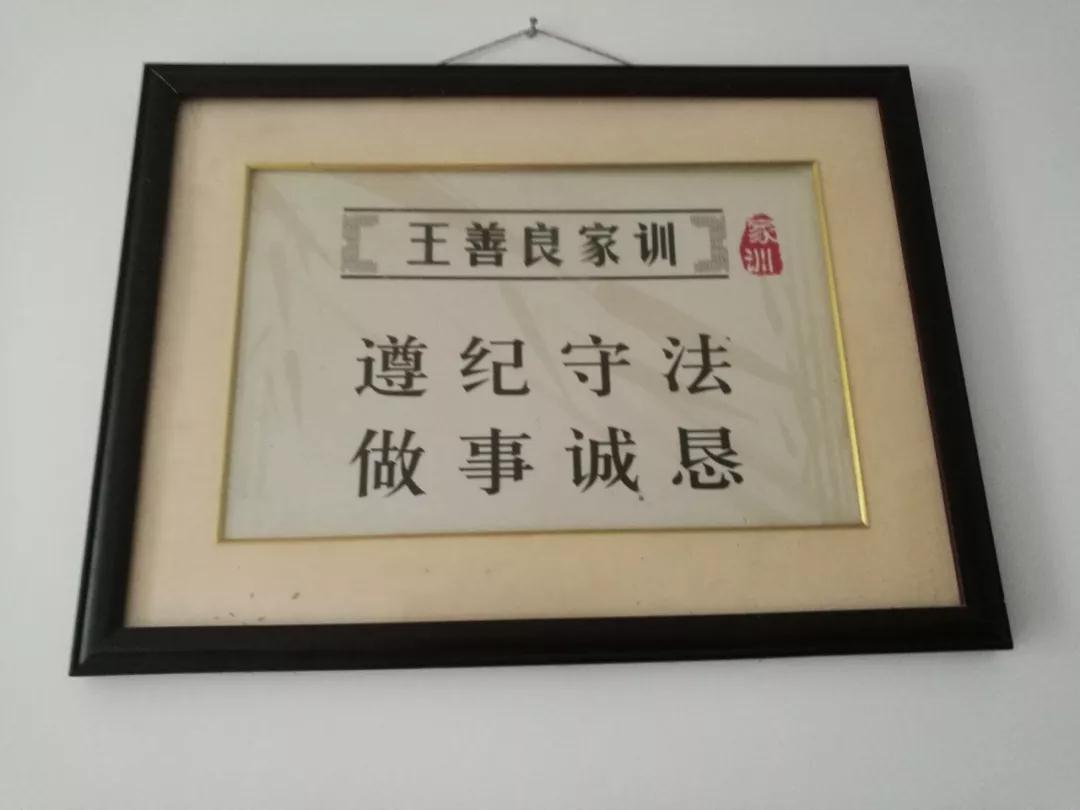 王善良家训
家训
遵纪守法
做事诚恳